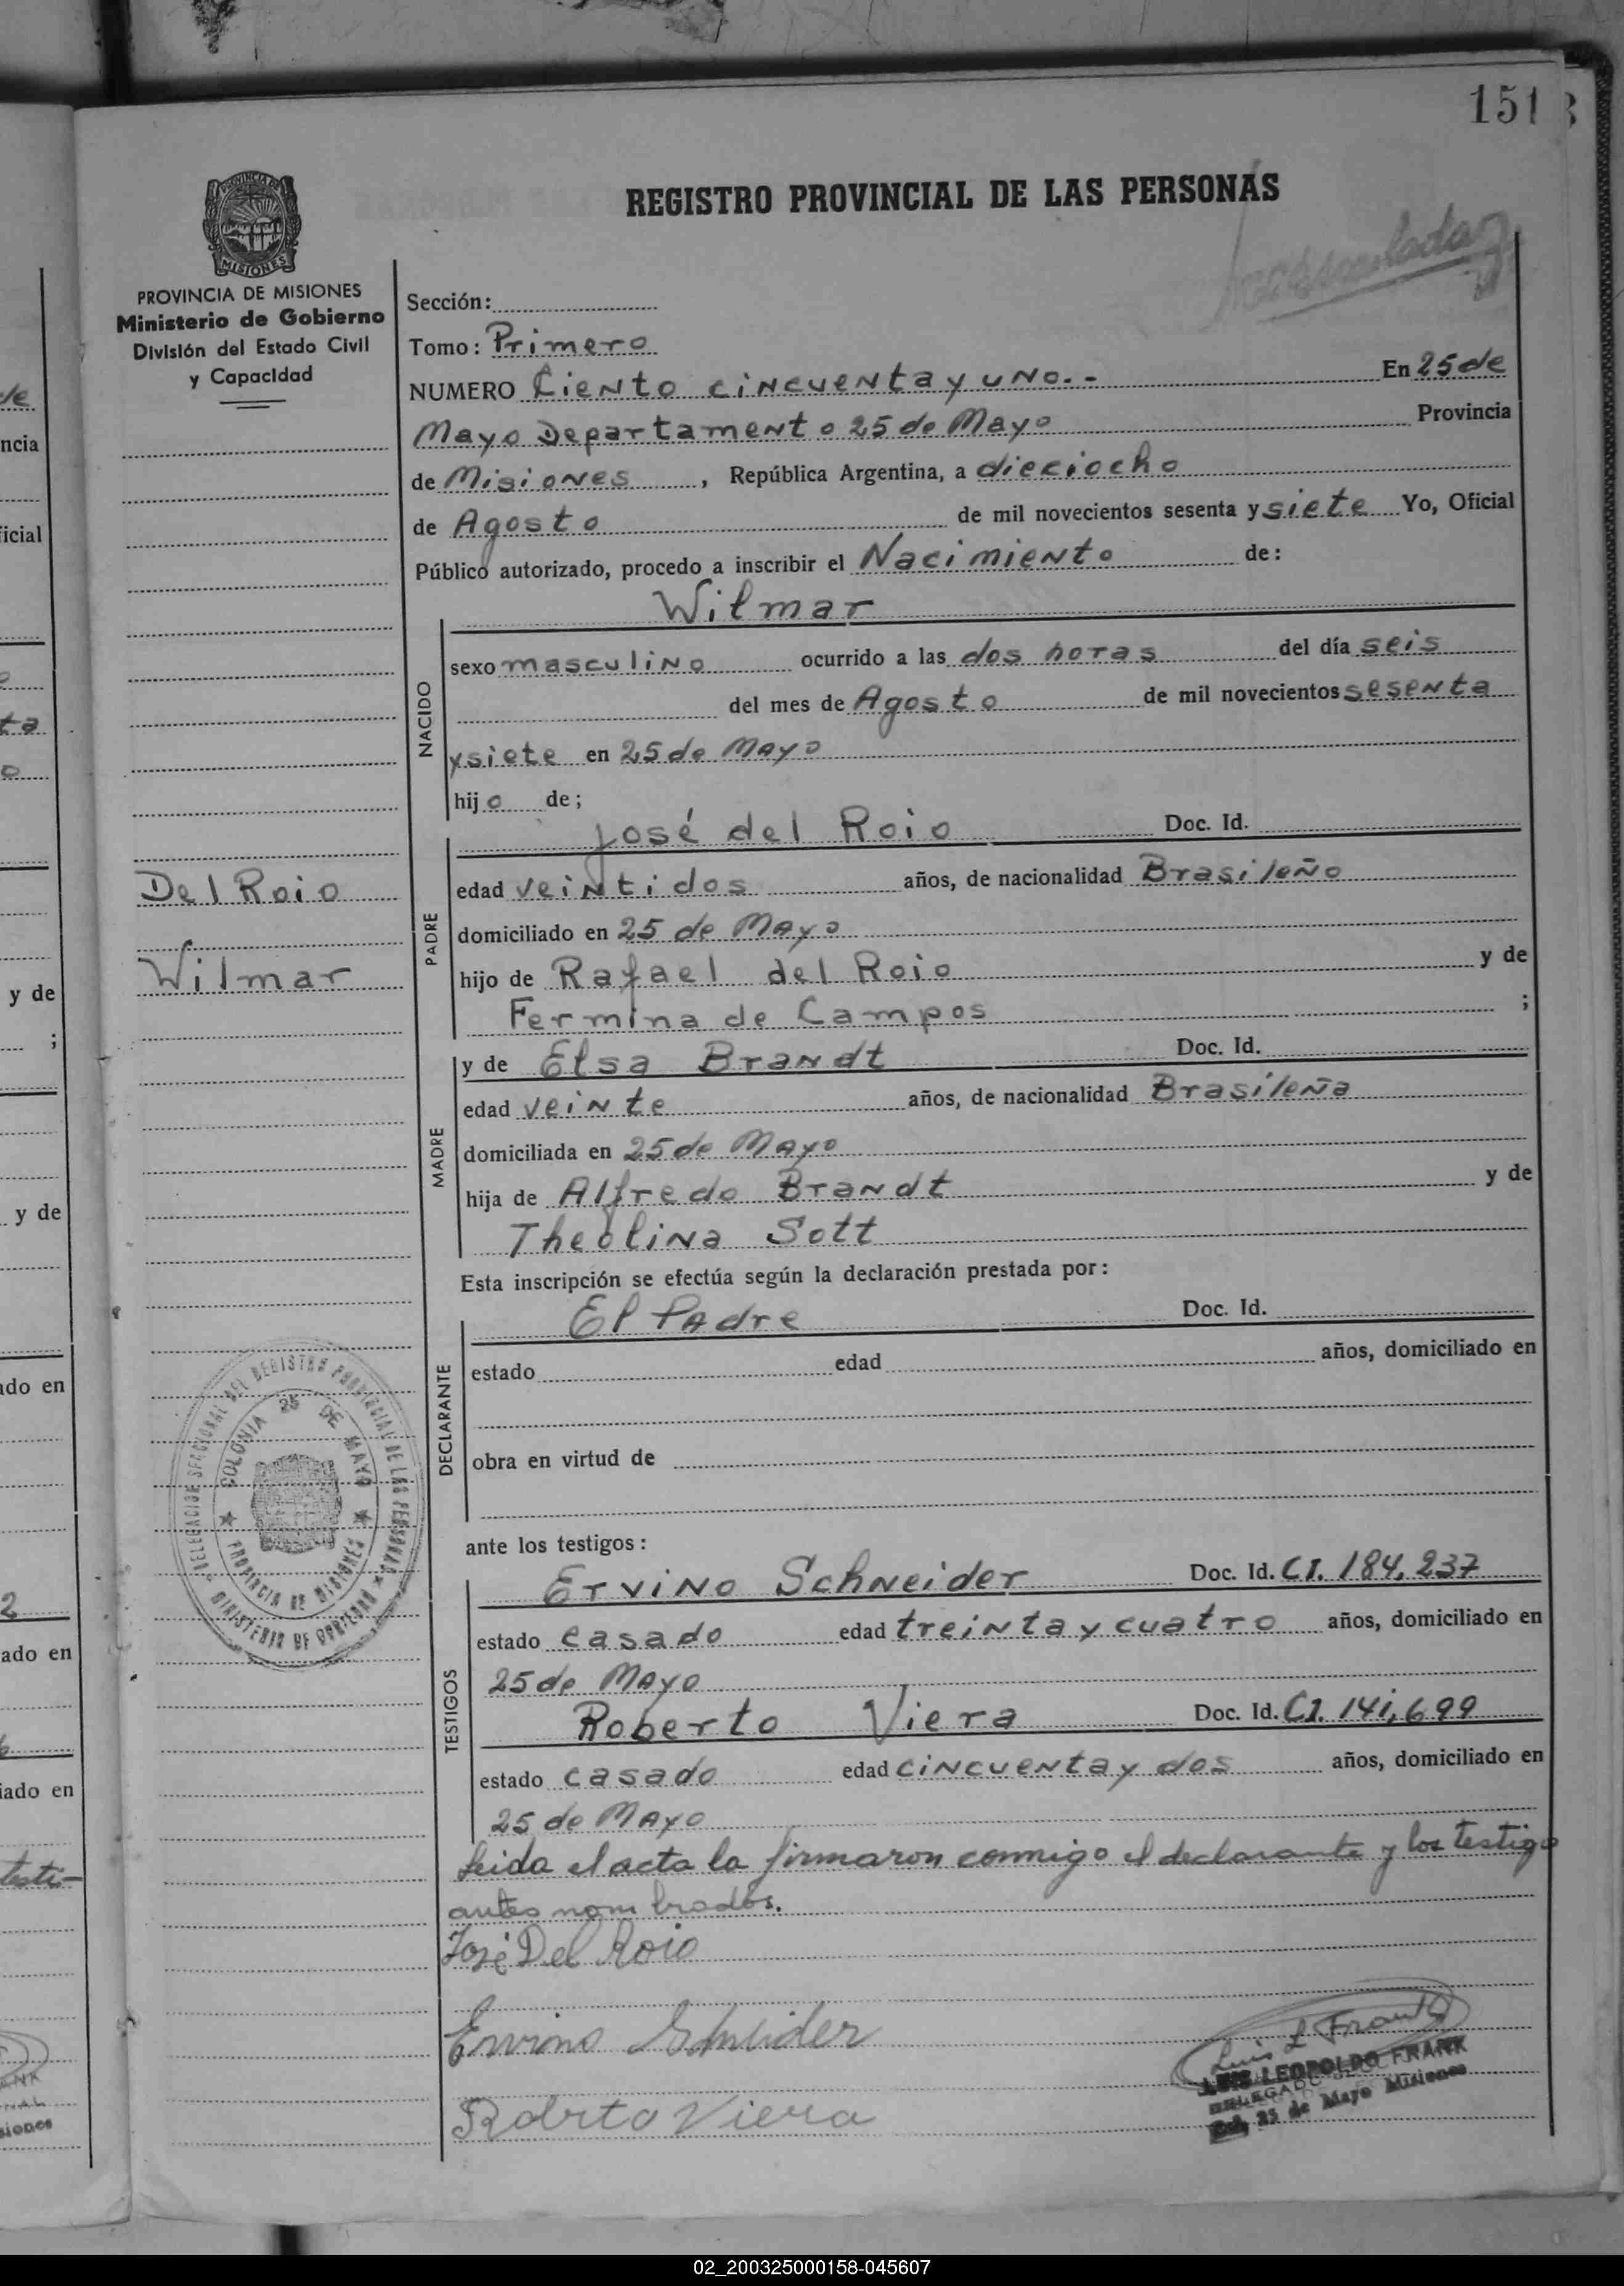 151
REGISTRO PROVINCIAL DE LAS PERSONAS
PROVINCIA DE MISIONES
Ministerio de Gobierno
División del Estado Civil
y Capacidad
Sección:
Tomo: Primero
NUMERO Ciento cincuenta y uno.- En 25 de
Mayo Departamento 25 de Mayo Provincia
de Misiones, República Argentina, a dieciocho
de Agosto de mil novecientos sesenta y siete Yo, Oficial
Público autorizado, procedo a inscribir el Nacimiento de:
NACIDO
Wilmar
sexo masculino ocurrido a las dos horas del día seis
del mes de Agosto de mil novecientos sesenta
y siete en 25 de Mayo
hijo de;
PADRE
José del Roio Doc. Id.
edad veintidos años, de nacionalidad Brasileño
domiciliado en 25 de Mayo
hijo de Rafael del Roio y de
Fermina de Campos ;
Del Roio
Wilmar
MADRE
y de Elsa Brandt Doc. Id.
edad veinte años, de nacionalidad Brasileña
domiciliada en 25 de Mayo
hija de Alfredo Brandt y de
Theolina Sott
Esta inscripción se efectúa según la declaración prestada por:
DECLARANTE
El Padre Doc. Id.
estado edad años, domiciliado en
obra en virtud de
DELEGACION SECCIONAL DEL REGISTRO PROVINCIAL DE LAS PERSONAS
MINISTERIO DE GOBIERNO
COLONIA 25 DE MAYO
PROVINCIA DE MISIONES
ante los testigos:
TESTIGOS
Ervino Schneider Doc. Id. C.I. 184.237
estado casado edad treinta y cuatro años, domiciliado en
25 de Mayo
Roberto Viera Doc. Id. C.I. 141.699
estado casado edad cincuenta y dos años, domiciliado en
25 de Mayo
Leida el acta la firmaron conmigo el declarante y los testigo
antes nombrados.
José Del Roio
Ervino Schneider
Roberto Viera
Luis L Frank
LUIS LEOPOLDO FRANK
DELEGADO SECCIONAL
Col. 25 de Mayo Misiones
02_200325000158-045607